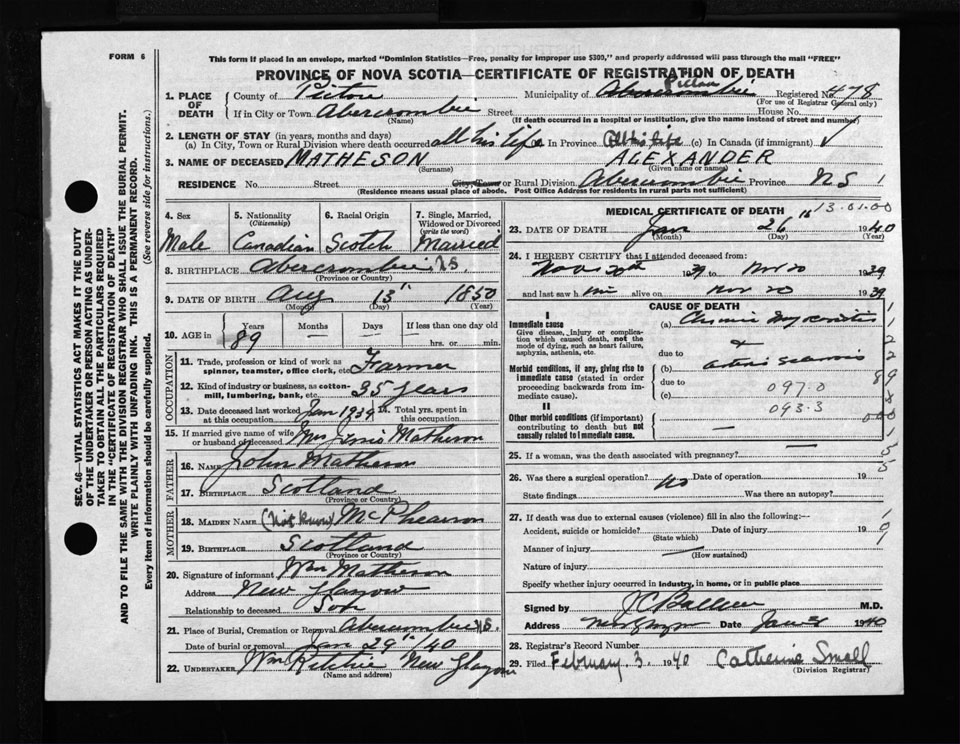 FORM 6
This form if placed in an envelope, marked "Dominion Statistics—Free, penalty for improper use $300," and properly addressed will pass through the mail "FREE"
PROVINCE OF NOVA SCOTIA—CERTIFICATE OF REGISTRATION OF DEATH
1. PLACE OF DEATH County of Pictou Municipality of Pictou Abercrombie Registered No. 478
(For use of Registrar General only)
If in City or Town Abercrombie Street House No.
(Name) (If death occurred in a hospital or institution, give the name instead of street and number)
2. LENGTH OF STAY (in years, months and days)
(a) In City, Town or Rural Division where death occurred all his life (b) In Province All his life (c) In Canada (if immigrant)
3. NAME OF DECEASED MATHESON ALEXANDER
(Surname) (Given name or names)
RESIDENCE No. Street City, Town or Rural Division Abercrombie Province NS
(Residence means usual place of abode. Post Office Address for residents in rural parts not sufficient)
SEC. 46—VITAL STATISTICS ACT MAKES IT THE DUTY
OF THE UNDERTAKER OR PERSON ACTING AS UNDER-
TAKER TO OBTAIN ALL THE PARTICULARS REQUIRED
IN THE "CERTIFICATE OF REGISTRATION OF DEATH"
AND TO FILE THE SAME WITH THE DIVISION REGISTRAR WHO SHALL ISSUE THE BURIAL PERMIT.
WRITE PLAINLY WITH UNFADING INK. THIS IS A PERMANENT RECORD.
Every item of information should be carefully supplied. (See reverse side for instructions.)
4. Sex 5. Nationality (Citizenship) 6. Racial Origin 7. Single, Married, Widowed or Divorced (write the word)
Male Canadian Scotch Married
8. BIRTHPLACE Abercrombie NS.
(Province or Country)
9. DATE OF BIRTH Aug 13" 1850
(Month) (Day) (Year)
10. AGE in Years Months Days If less than one day old
89 — — hrs. or min.
OCCUPATION
11. Trade, profession or kind of work as
spinner, teamster, office clerk, etc. Farmer
12. Kind of industry or business, as cotton-
mill, lumbering, bank, etc. 35 years
13. Date deceased last worked at this occupation Jan 1939 14. Total yrs. spent in this occupation
15. If married give name of wife or husband of deceased Mrs Jessie Matheson
FATHER
16. NAME John Matheson
17. BIRTHPLACE Scotland
(Province or Country)
MOTHER
18. MAIDEN NAME (Not Known) McPhearson
19. BIRTHPLACE Scotland
(Province or Country)
20. Signature of informant Wm Matheson
Address New Glasgow
Relationship to deceased Son
21. Place of Burial, Cremation or Removal Abercrombie NS.
Date of burial or removal Jan 29" /40
22. UNDERTAKER Wm Ritchie New Glasgow
(Name and address)
MEDICAL CERTIFICATE OF DEATH 13.01.00
23. DATE OF DEATH Jan 26" 1940
(Month) (Day) (Year)
24. I HEREBY CERTIFY that I attended deceased from:
Nov 20th 1939 to Nov 20 1939
and last saw him alive on Nov 20 1939
CAUSE OF DEATH
I
Immediate cause (a) Chronic Myocarditis
Give disease, injury or complica-
tion which caused death, not the
mode of dying, such as heart failure,
asphyxia, asthenia, etc.
due to
Morbid conditions, if any, giving rise to
immediate cause (stated in order
proceeding backwards from im-
mediate cause).
(b) arterio sclerosis
due to 097.0
(c) 093.3
II
Other morbid conditions (if important)
contributing to death but not
causally related to immediate cause.
25. If a woman, was the death associated with pregnancy? —
26. Was there a surgical operation? No Date of operation 19
State findings Was there an autopsy?
27. If death was due to external causes (violence) fill in also the following:—
Accident, suicide or homicide? Date of injury 19
(State which)
Manner of injury —
(How sustained)
Nature of injury
Specify whether injury occurred in industry, in home, or in public place
Signed by M.D.
Address Date 1940
28. Registrar's Record Number
29. Filed February 3, 1940 Catherine Small
(Division Registrar)